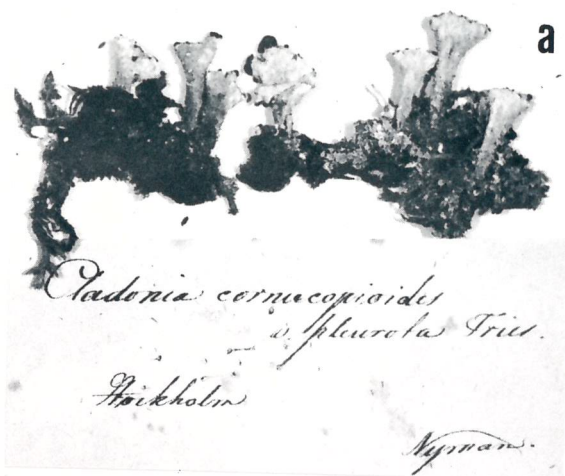 a
Cladonia cornucopioides
pleurota Fries.
Stockholm
Nyman.